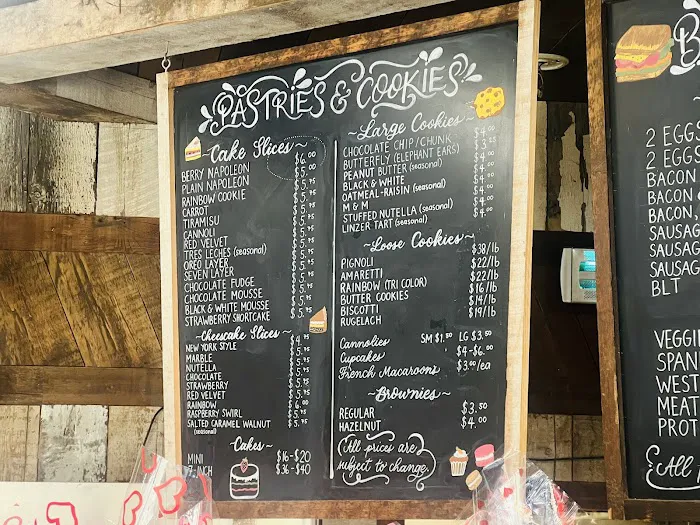 PASTRIES & COOKIES
~Cake Slices~
BERRY NAPOLEON $6.00
PLAIN NAPOLEON $5.00
RAINBOW COOKIE $5.95
CARROT $5.95
TIRAMISU $5.95
CANNOLI $5.95
RED VELVET $5.95
TRES LECHES (seasonal) $5.95
OREO LAYER $5.95
SEVEN LAYER $5.95
CHOCOLATE FUDGE $5.95
CHOCOLATE MOUSSE $5.95
BLACK & WHITE MOUSSE $5.95
STRAWBERRY SHORTCAKE $5.95
~Cheesecake Slices~
NEW YORK STYLE $4.95
MARBLE $5.95
NUTELLA $5.95
CHOCOLATE $5.95
STRAWBERRY $5.95
RED VELVET $5.95
RAINBOW $6.00
RASPBERRY SWIRL $5.95
SALTED CARAMEL WALNUT $5.95
(seasonal)
~Cakes~
MINI $16-$20
7-INCH $36-$40
~Large Cookies~
CHOCOLATE CHIP/CHUNK $4.00
BUTTERFLY (ELEPHANT EARS) $3.25
PEANUT BUTTER (seasonal) $4.00
BLACK & WHITE $4.00
OATMEAL-RAISIN (seasonal) $4.00
M & M $4.00
STUFFED NUTELLA (seasonal) $4.00
LINZER TART (seasonal) $4.00
~Loose Cookies~
PIGNOLI $38/lb
AMARETTI $22/lb
RAINBOW (TRI COLOR) $22/lb
BUTTER COOKIES $16/lb
BISCOTTI $14/lb
RUGELACH $19/lb
Cannolies SM $1.50 LG $3.50
Cupcakes $4-$6.00
French Macaroons $3.00/ea
~Brownies~
REGULAR $3.50
HAZELNUT $4.00
All prices are
subject to change.
2 EGGS
2 EGGS
BACON
BACON
BACON
SAUSAG
SAUSAG
SAUSAG
BLT
VEGGI
SPAN
WEST
MEAT
PROT
All